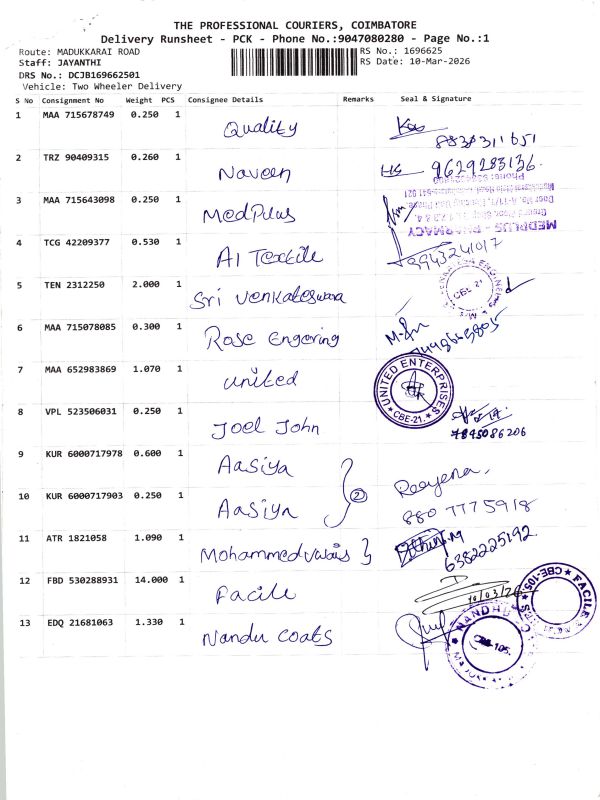 THE PROFESSIONAL COURIERS, COIMBATORE
Delivery Runsheet - PCK - Phone No.:9047080280 - Page No.:1
Route: MADUKKARAI ROAD
RS No.: 1696625
Staff: JAYANTHI
RS Date: 10-Mar-2026
DRS No.: DCJB169662501
Vehicle: Two Wheeler Delivery
S No Consignment No Weight PCS Consignee Details Remarks Seal & Signature
1 MAA 715678749 0.250 1 Quality
8838311651
2 TRZ 90409315 0.260 1 Naveen 9629283136
3 MAA 715643098 0.250 1 MedPlus
MEDPLUS - PHARMACY
4 TCG 42209377 0.530 1 AI Textile 9943241017
5 TEN 2312250 2.000 1 Sri Venkateswara CBE-21
6 MAA 715078085 0.300 1 Rose Engering
7 MAA 652983869 1.070 1 united UNITED ENTERPRISES CBE-21.
8 VPL 523506031 0.250 1 Joel John
7845086206
9 KUR 6000717978 0.600 1 Aasiya
10 KUR 6000717903 0.250 1 Aasiya 2
880 7775918
11 ATR 1821058 1.090 1 Mohammed 6382225192
12 FBD 530288931 14.000 1 Facile 10/03/26 FACILE CBE-105.
13 EDQ 21681063 1.330 1 Nandu coats CBE-105.